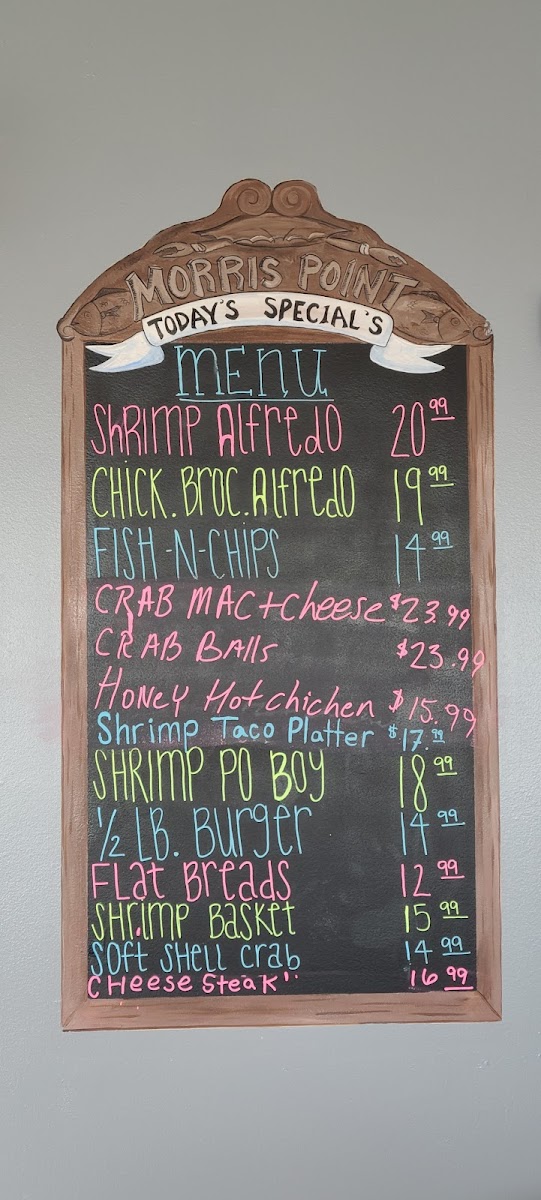 MORRIS POINT
TODAY'S SPECIAL'S
MENU
SHRIMP Alfredo 20 99
CHICK. BROC. Alfredo 19 99
FISH-N-CHIPS 14 99
CRAB MAC + Cheese $23.99
CRAB BAlls $23.99
HoNey Hot chichen $15.99
Shrimp Taco Platter $17.99
SHRIMP PO BOY 18 99
1/2 LB. Burger 14 99
FLat Breads 12 99
SHRimp BasKet 15 99
SOFt SHell Crab 14 99
CHeese SteaK'' 16 99